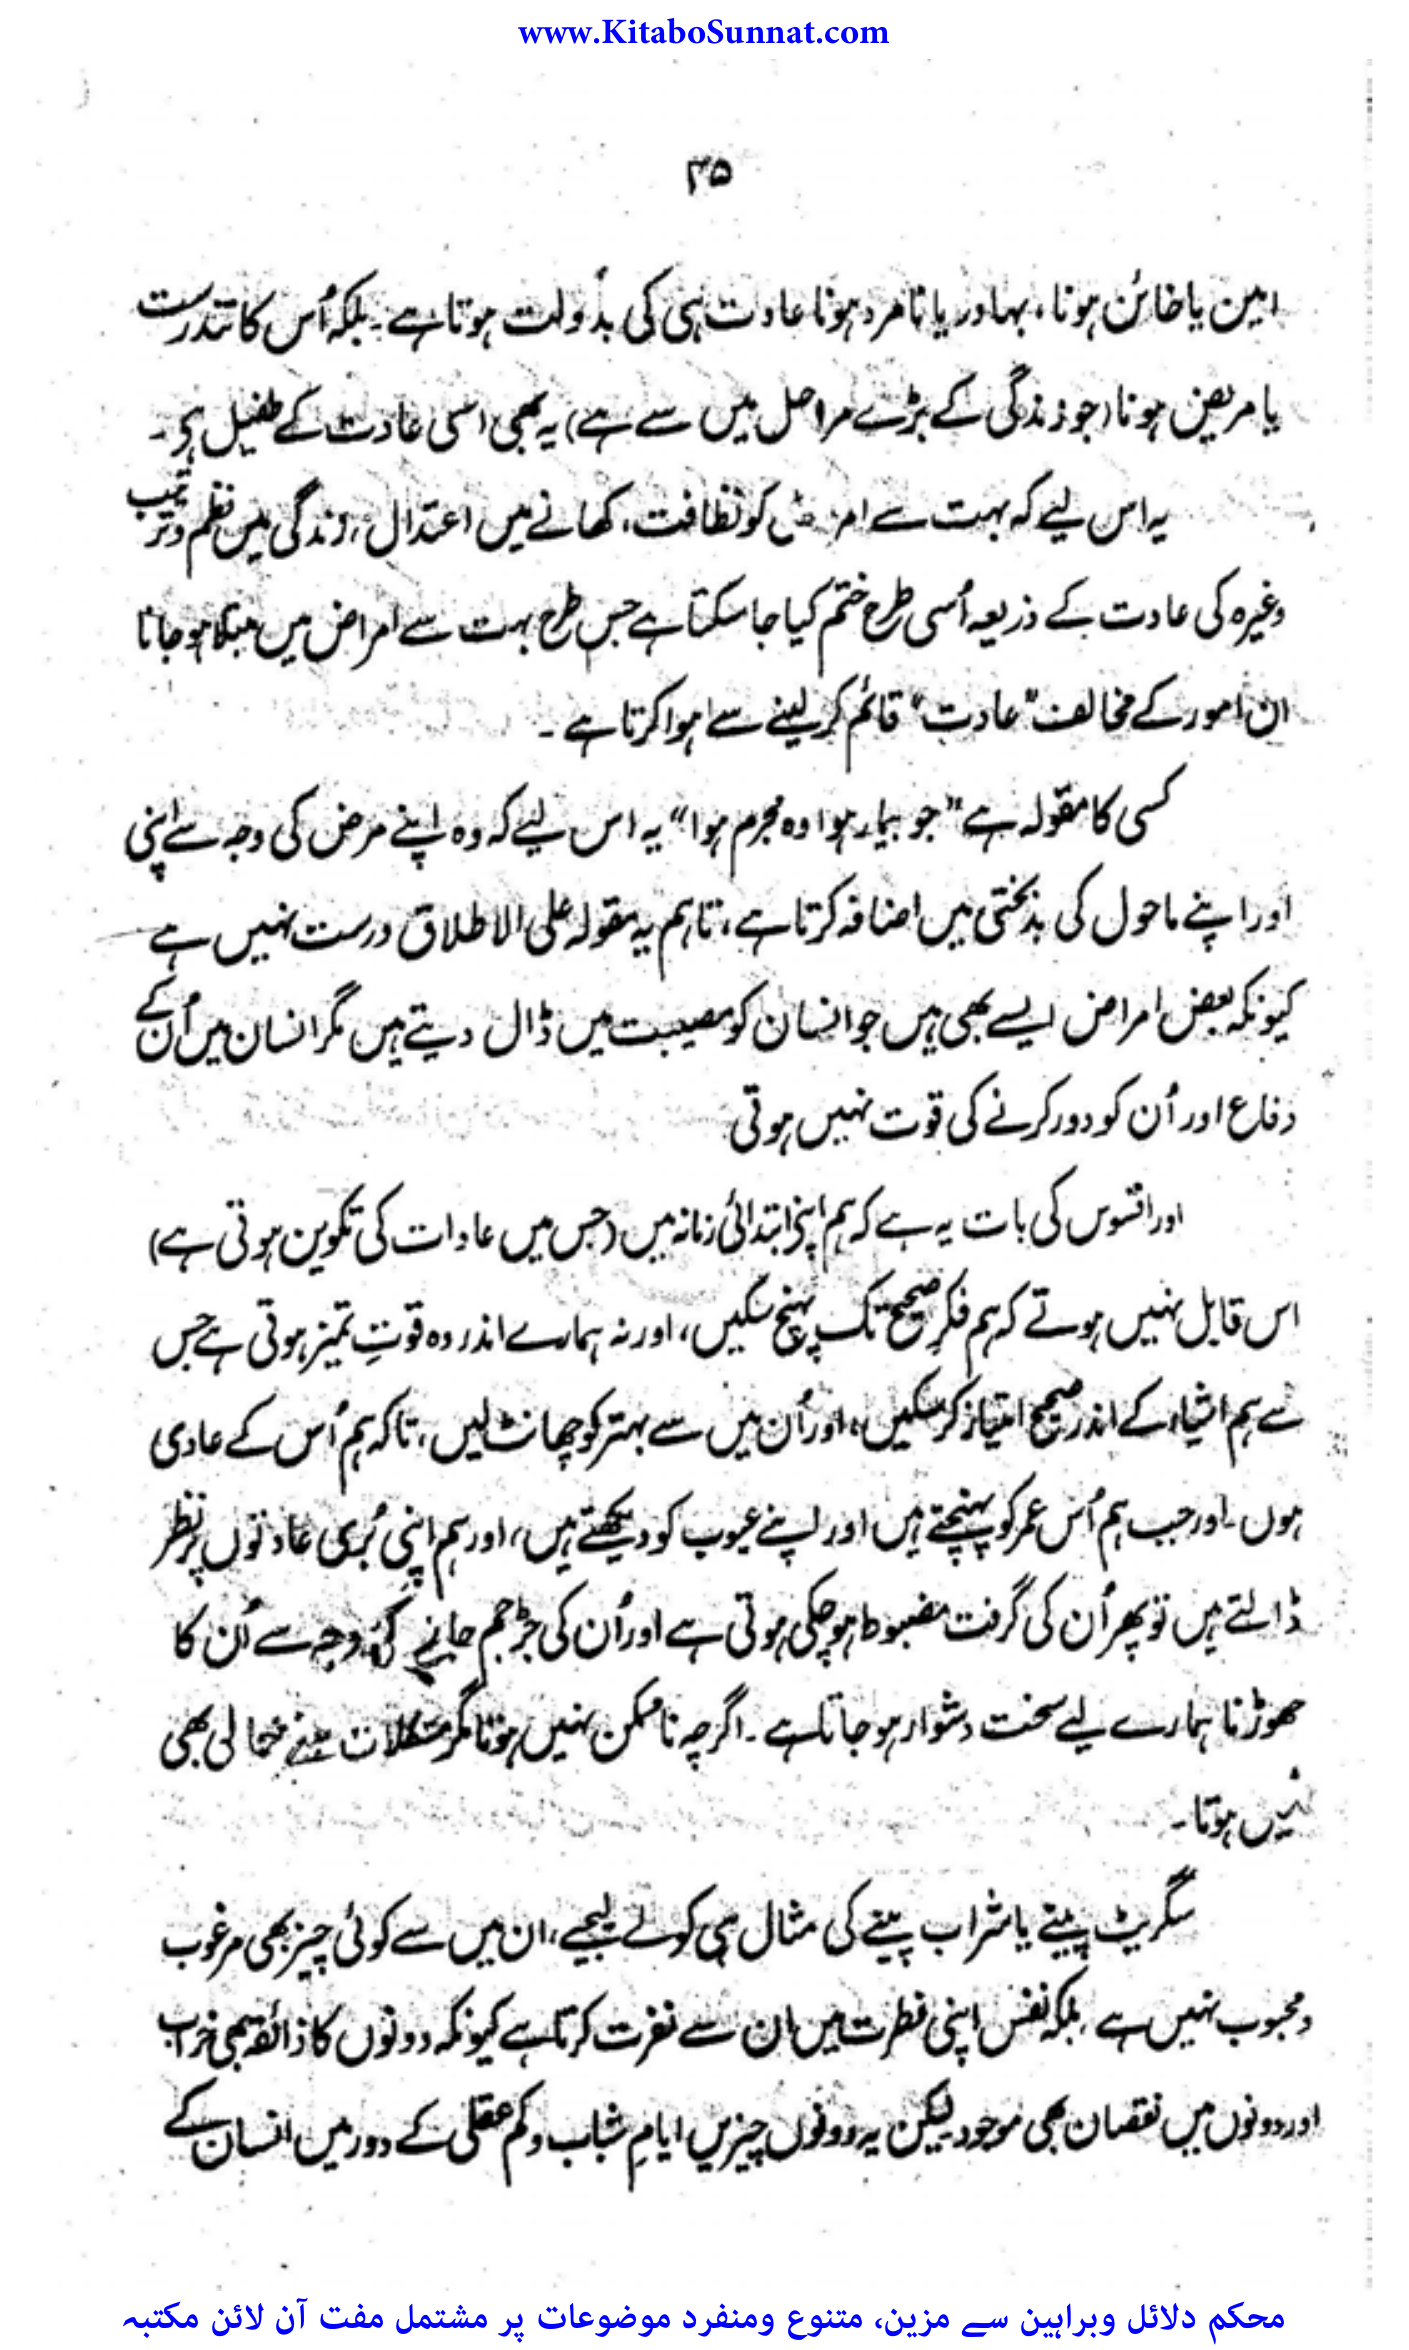 www.KitaboSunnat.com
۳۵
امین یا خائن ہونا، بہادر یا نامرد ہونا عادت ہی کی بدولت ہوتا ہے۔ بلکہ اُس کا تندرست
یا مریض ہونا (جو زندگی کے بڑے مراحل میں سے ہے) یہ بھی اسی عادت کے طفیل ہی۔
یہ اس لیے کہ بہت سے امراض کو نظافت، کھانے میں اعتدال، زندگی میں نظم و ترتیب
وغیرہ کی عادت کے ذریعہ اُسی طرح ختم کیا جا سکتا ہے جس طرح بہت سے امراض میں مبتلا ہو جانا
ان امور کے مخالف "عادت" قائم کر لینے سے ہوا کرتا ہے۔
کسی کا مقولہ ہے "جو بیمار ہوا وہ مجرم ہوا" یہ اس لیے کہ وہ اپنے مرض کی وجہ سے اپنی
اور اپنے ماحول کی بدبختی میں اضافہ کرتا ہے، تاہم یہ مقولہ علی الاطلاق درست نہیں ہے
کیونکہ بعض امراض ایسے بھی ہیں جو انسان کو مصیبت میں ڈال دیتے ہیں مگر انسان میں اُن کے
دفاع اور اُن کو دور کرنے کی قوت نہیں ہوتی
اور افسوس کی بات یہ ہے کہ ہم اپنے ابتدائی زمانہ میں (جس میں عادات کی تکوین ہوتی ہے)
اس قابل نہیں ہوتے کہ ہم فکرِ صحیح تک پہنچ سکیں، اور نہ ہمارے اندر وہ قوتِ تمیز ہوتی ہے جس
سے ہم اشیاء کے اندر صحیح امتیاز کر سکیں، اور اُن میں سے بہتر کو چھانٹ لیں، تاکہ ہم اُس کے عادی
ہوں۔ اور جب ہم اُس عمر کو پہنچتے ہیں اور اپنے عیوب کو دیکھتے ہیں، اور ہم اپنی بُری عادتوں پر نظر
ڈالتے ہیں تو پھر اُن کی گرفت مضبوط ہو چکی ہوتی ہے اور اُن کی جڑ جم جانے کی وجہ سے اُن کا
چھوڑنا ہمارے لیے سخت دشوار ہو جاتا ہے۔ اگرچہ ناممکن نہیں ہوتا مگر مشکلات سے خالی بھی
نہیں ہوتا۔
سگریٹ پینے یا شراب پینے کی مثال ہی کو لے لیجیے، ان میں سے کوئی چیز بھی مرغوب
و محبوب نہیں ہے، بلکہ نفس اپنی فطرت میں ان سے نفرت کرتا ہے کیونکہ دونوں کا ذائقہ بھی خراب
اور دونوں میں نقصان بھی موجود لیکن یہ دونوں چیزیں ایامِ شباب و کم عقلی کے دور میں انسان کے
محکم دلائل وبراہین سے مزین، متنوع ومنفرد موضوعات پر مشتمل مفت آن لائن مکتبہ